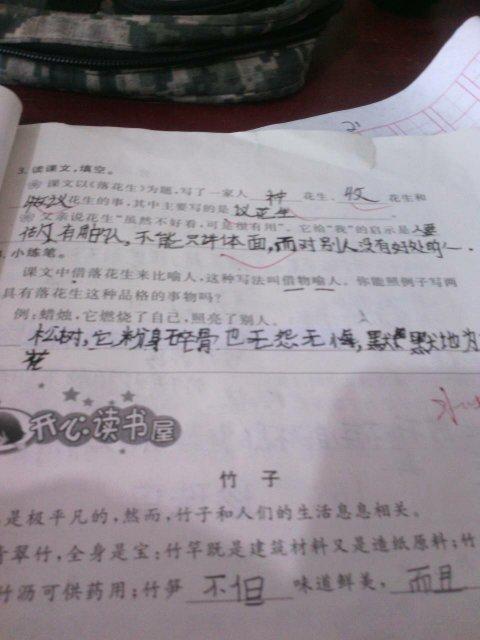 3. 读课文,填空。
课文以《落花生》为题,写了一家人 种 花生、收 花生和
花生的事,其中主要写的是 议花生 。
父亲说花生“虽然不好看,可是很有用”。它给“我”的启示是人要
做有用的人,不能只讲体面,而对别人没有好处的人.
4. 小练笔。
课文中借落花生来比喻人,这种写法叫借物喻人。你能照例子写两
具有落花生这种品格的事物吗?
例:蜡烛,它燃烧了自己,照亮了别人。
松树,它粉身碎骨也无怨无悔,默默地为
花
开心读书屋
竹 子
是极平凡的,然而,竹子和人们的生活息息相关。
青翠竹,全身是宝;竹竿既是建筑材料又是造纸原料;竹
竹沥可供药用;竹笋 不但 味道鲜美,而且